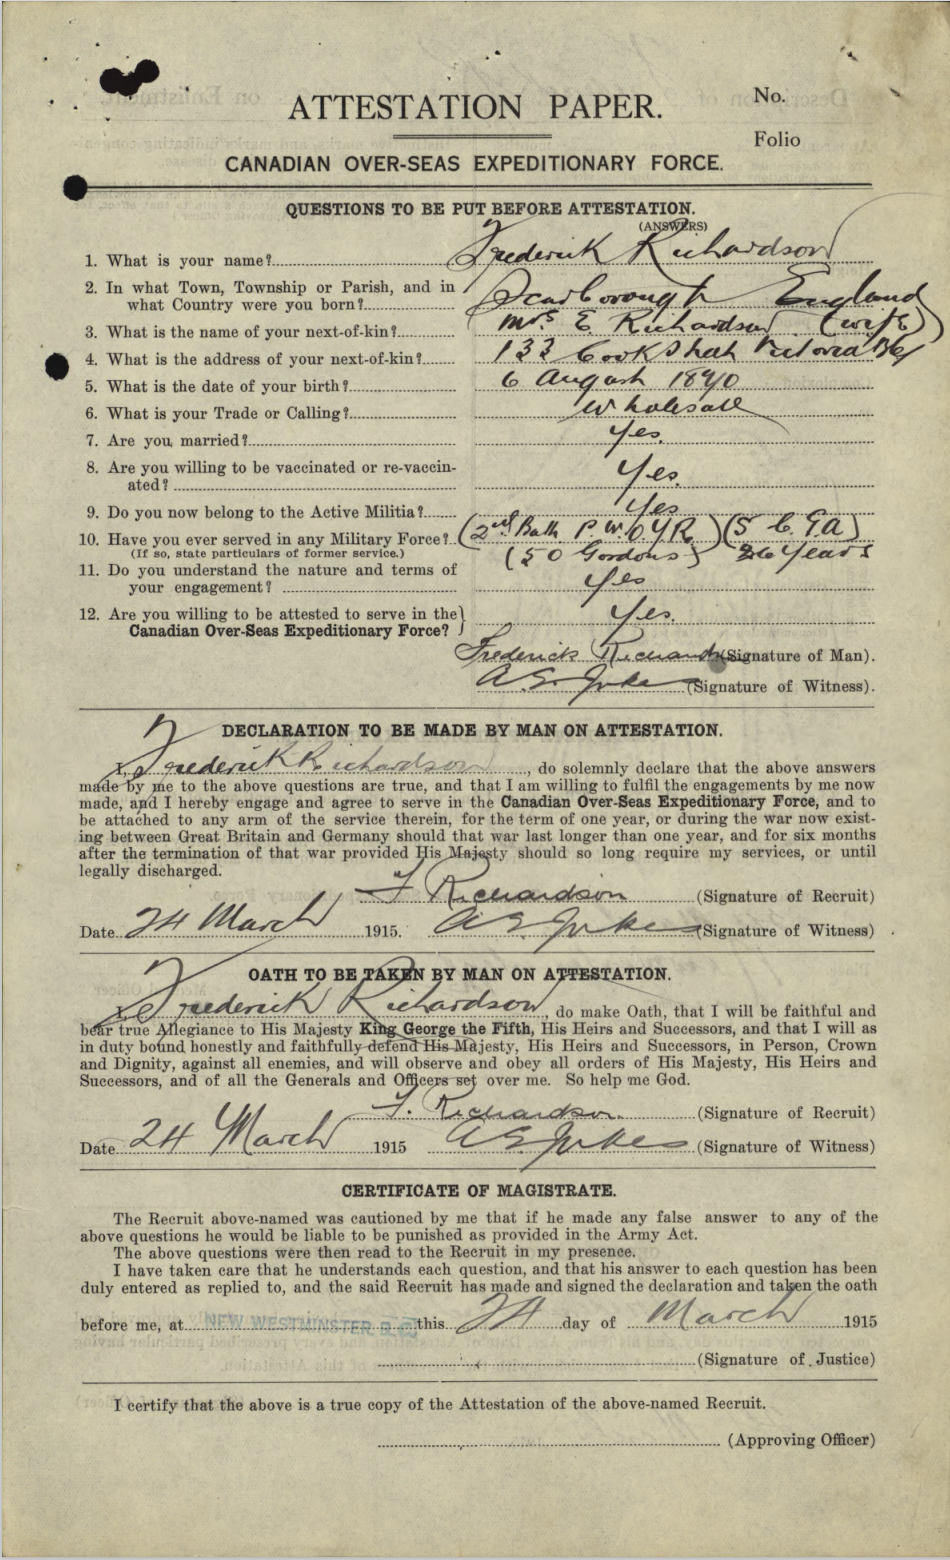 ATTESTATION PAPER.
No.
Folio
CANADIAN OVER-SEAS EXPEDITIONARY FORCE.
QUESTIONS TO BE PUT BEFORE ATTESTATION.
(ANSWERS)
1. What is your name? Frederick Richardson
2. In what Town, Township or Parish, and in
what Country were you born? Scarborough England
3. What is the name of your next-of-kin? Mrs E Richardson (wife)
4. What is the address of your next-of-kin? 133 Cook Victoria BC
5. What is the date of your birth? 6 August
6. What is your Trade or Calling?
7. Are you married? Yes.
8. Are you willing to be vaccinated or re-vaccin-
ated? Yes.
9. Do you now belong to the Active Militia? Yes
10. Have you ever served in any Military Force? (2nd Batt. P. W. O Y R) (5 C. G A)
(If so, state particulars of former service.) (50 Gordons) Years
11. Do you understand the nature and terms of
your engagement? Yes
12. Are you willing to be attested to serve in the }
Canadian Over-Seas Expeditionary Force? } Yes.
Frederick Richardson (Signature of Man).
(Signature of Witness).
DECLARATION TO BE MADE BY MAN ON ATTESTATION.
Frederick Richardson, do solemnly declare that the above answers
made by me to the above questions are true, and that I am willing to fulfil the engagements by me now
made, and I hereby engage and agree to serve in the Canadian Over-Seas Expeditionary Force, and to
be attached to any arm of the service therein, for the term of one year, or during the war now exist-
ing between Great Britain and Germany should that war last longer than one year, and for six months
after the termination of that war provided His Majesty should so long require my services, or until
legally discharged.
F Richardson (Signature of Recruit)
Date 24 March 1915. (Signature of Witness)
OATH TO BE TAKEN BY MAN ON ATTESTATION.
Frederick Richardson, do make Oath, that I will be faithful and
bear true Allegiance to His Majesty King George the Fifth, His Heirs and Successors, and that I will as
in duty bound honestly and faithfully defend His Majesty, His Heirs and Successors, in Person, Crown
and Dignity, against all enemies, and will observe and obey all orders of His Majesty, His Heirs and
Successors, and of all the Generals and Officers set over me. So help me God.
F. Richardson. (Signature of Recruit)
Date 24 March 1915 (Signature of Witness)
CERTIFICATE OF MAGISTRATE.
The Recruit above-named was cautioned by me that if he made any false answer to any of the
above questions he would be liable to be punished as provided in the Army Act.
The above questions were then read to the Recruit in my presence.
I have taken care that he understands each question, and that his answer to each question has been
duly entered as replied to, and the said Recruit has made and signed the declaration and taken the oath
before me, at NEW WESTMINSTER B.C. this 24 day of March 1915
(Signature of Justice)
I certify that the above is a true copy of the Attestation of the above-named Recruit.
(Approving Officer)